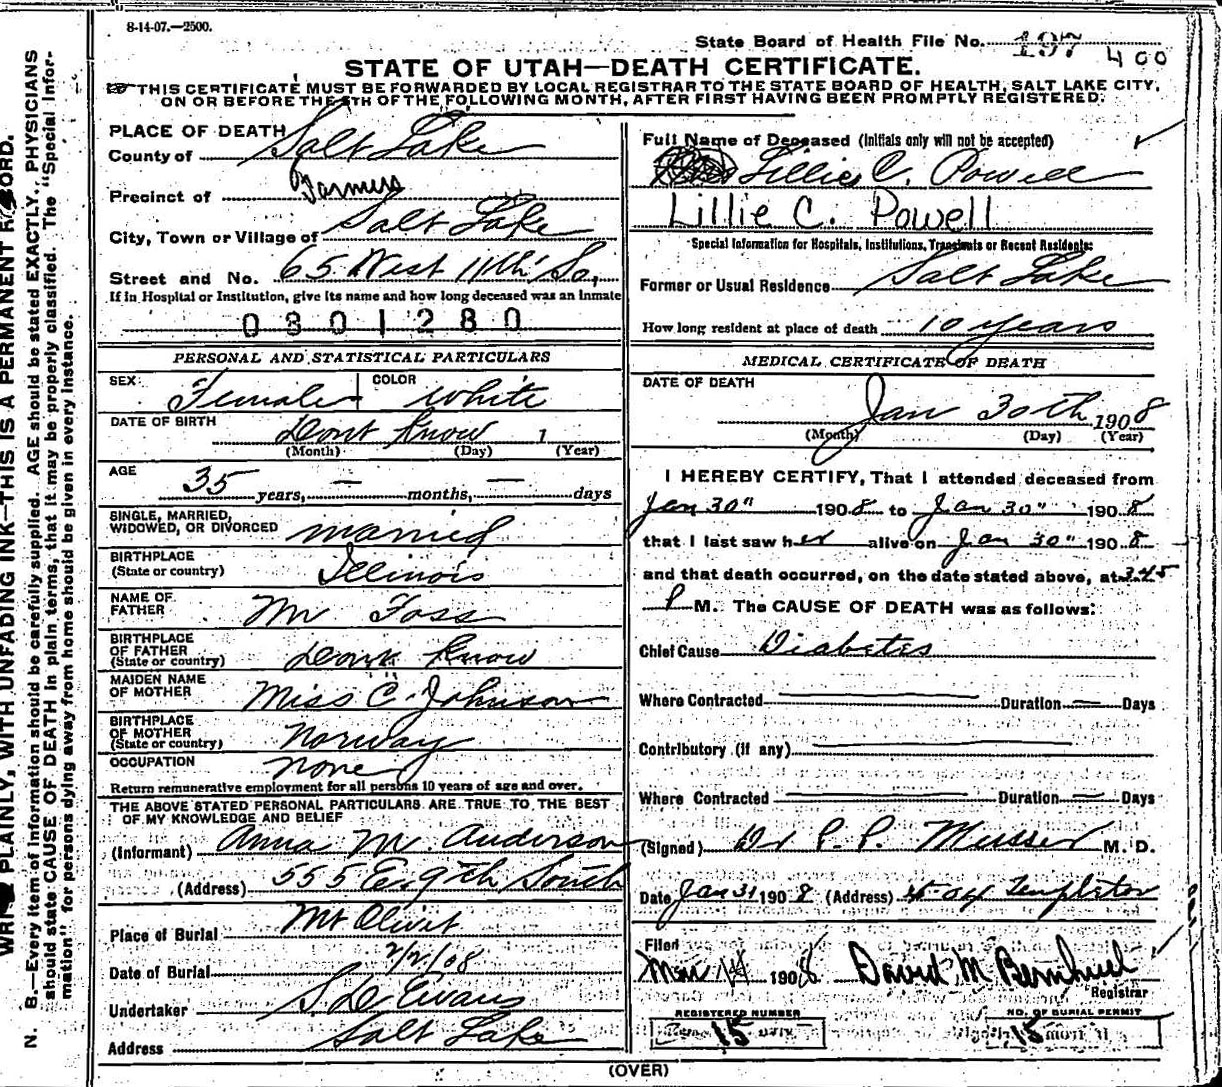 8-14-07.—2500.
State Board of Health File No. 197 400
STATE OF UTAH—DEATH CERTIFICATE.
THIS CERTIFICATE MUST BE FORWARDED BY LOCAL REGISTRAR TO THE STATE BOARD OF HEALTH, SALT LAKE CITY,
ON OR BEFORE THE 5TH OF THE FOLLOWING MONTH, AFTER FIRST HAVING BEEN PROMPTLY REGISTERED.
PLACE OF DEATH
County of Salt Lake
Precinct of Farmers
City, Town or Village of Salt Lake
Street and No. 65 West 11th So,
If in Hospital or Institution, give its name and how long deceased was an inmate
0301280
PERSONAL AND STATISTICAL PARTICULARS
SEX: Female COLOR White
DATE OF BIRTH Dont Know 1
(Month) (Day) (Year)
AGE
35 years, — months, — days
SINGLE, MARRIED,
WIDOWED, OR DIVORCED married
BIRTHPLACE
(State or country) Illinois
NAME OF
FATHER Mr Foss
BIRTHPLACE
OF FATHER
(State or country) Dont Know
MAIDEN NAME
OF MOTHER Miss C. Johnson
BIRTHPLACE
OF MOTHER
(State or country) Norway
OCCUPATION none
Return remunerative employment for all persons 10 years of age and over.
THE ABOVE STATED PERSONAL PARTICULARS ARE TRUE TO THE BEST
OF MY KNOWLEDGE AND BELIEF
(Informant) Anna M. Anderson
(Address) 555 E. 9th South
Place of Burial Mt Olivit
Date of Burial 2/2/08
Undertaker S. D. Evans
Address Salt Lake
Full Name of Deceased (Initials only will not be accepted)
Lillie C. Powell
Lillie C. Powell
Special Information for Hospitals, Institutions, Transients or Recent Residents:
Former or Usual Residence Salt Lake
How long resident at place of death 10 years
MEDICAL CERTIFICATE OF DEATH
DATE OF DEATH
Jan 30th 1908
(Month) (Day) (Year)
I HEREBY CERTIFY, That I attended deceased from
Jan 30" 1908 to Jan 30" 1908
that I last saw her alive on Jan 30" 1908
and that death occurred, on the date stated above, at 3.45
P M. The CAUSE OF DEATH was as follows:
Chief Cause Diabetes
Where Contracted Duration — Days
Contributory (if any)
Where Contracted Duration — Days
(Signed) Dr P. P. Musser M. D.
Date Jan 31 1908 (Address) Templeton
Filed
1908 David M
Registrar
REGISTERED NUMBER
15
NO. OF BURIAL PERMIT
15
(OVER)
WRITE PLAINLY, WITH UNFADING INK—THIS IS A PERMANENT RECORD.
N. B.—Every item of information should be carefully supplied. AGE should be stated EXACTLY. PHYSICIANS
should state CAUSE OF DEATH in plain terms, that it may be properly classified. The "Special Infor-
mation" for persons dying away from home should be given in every instance.